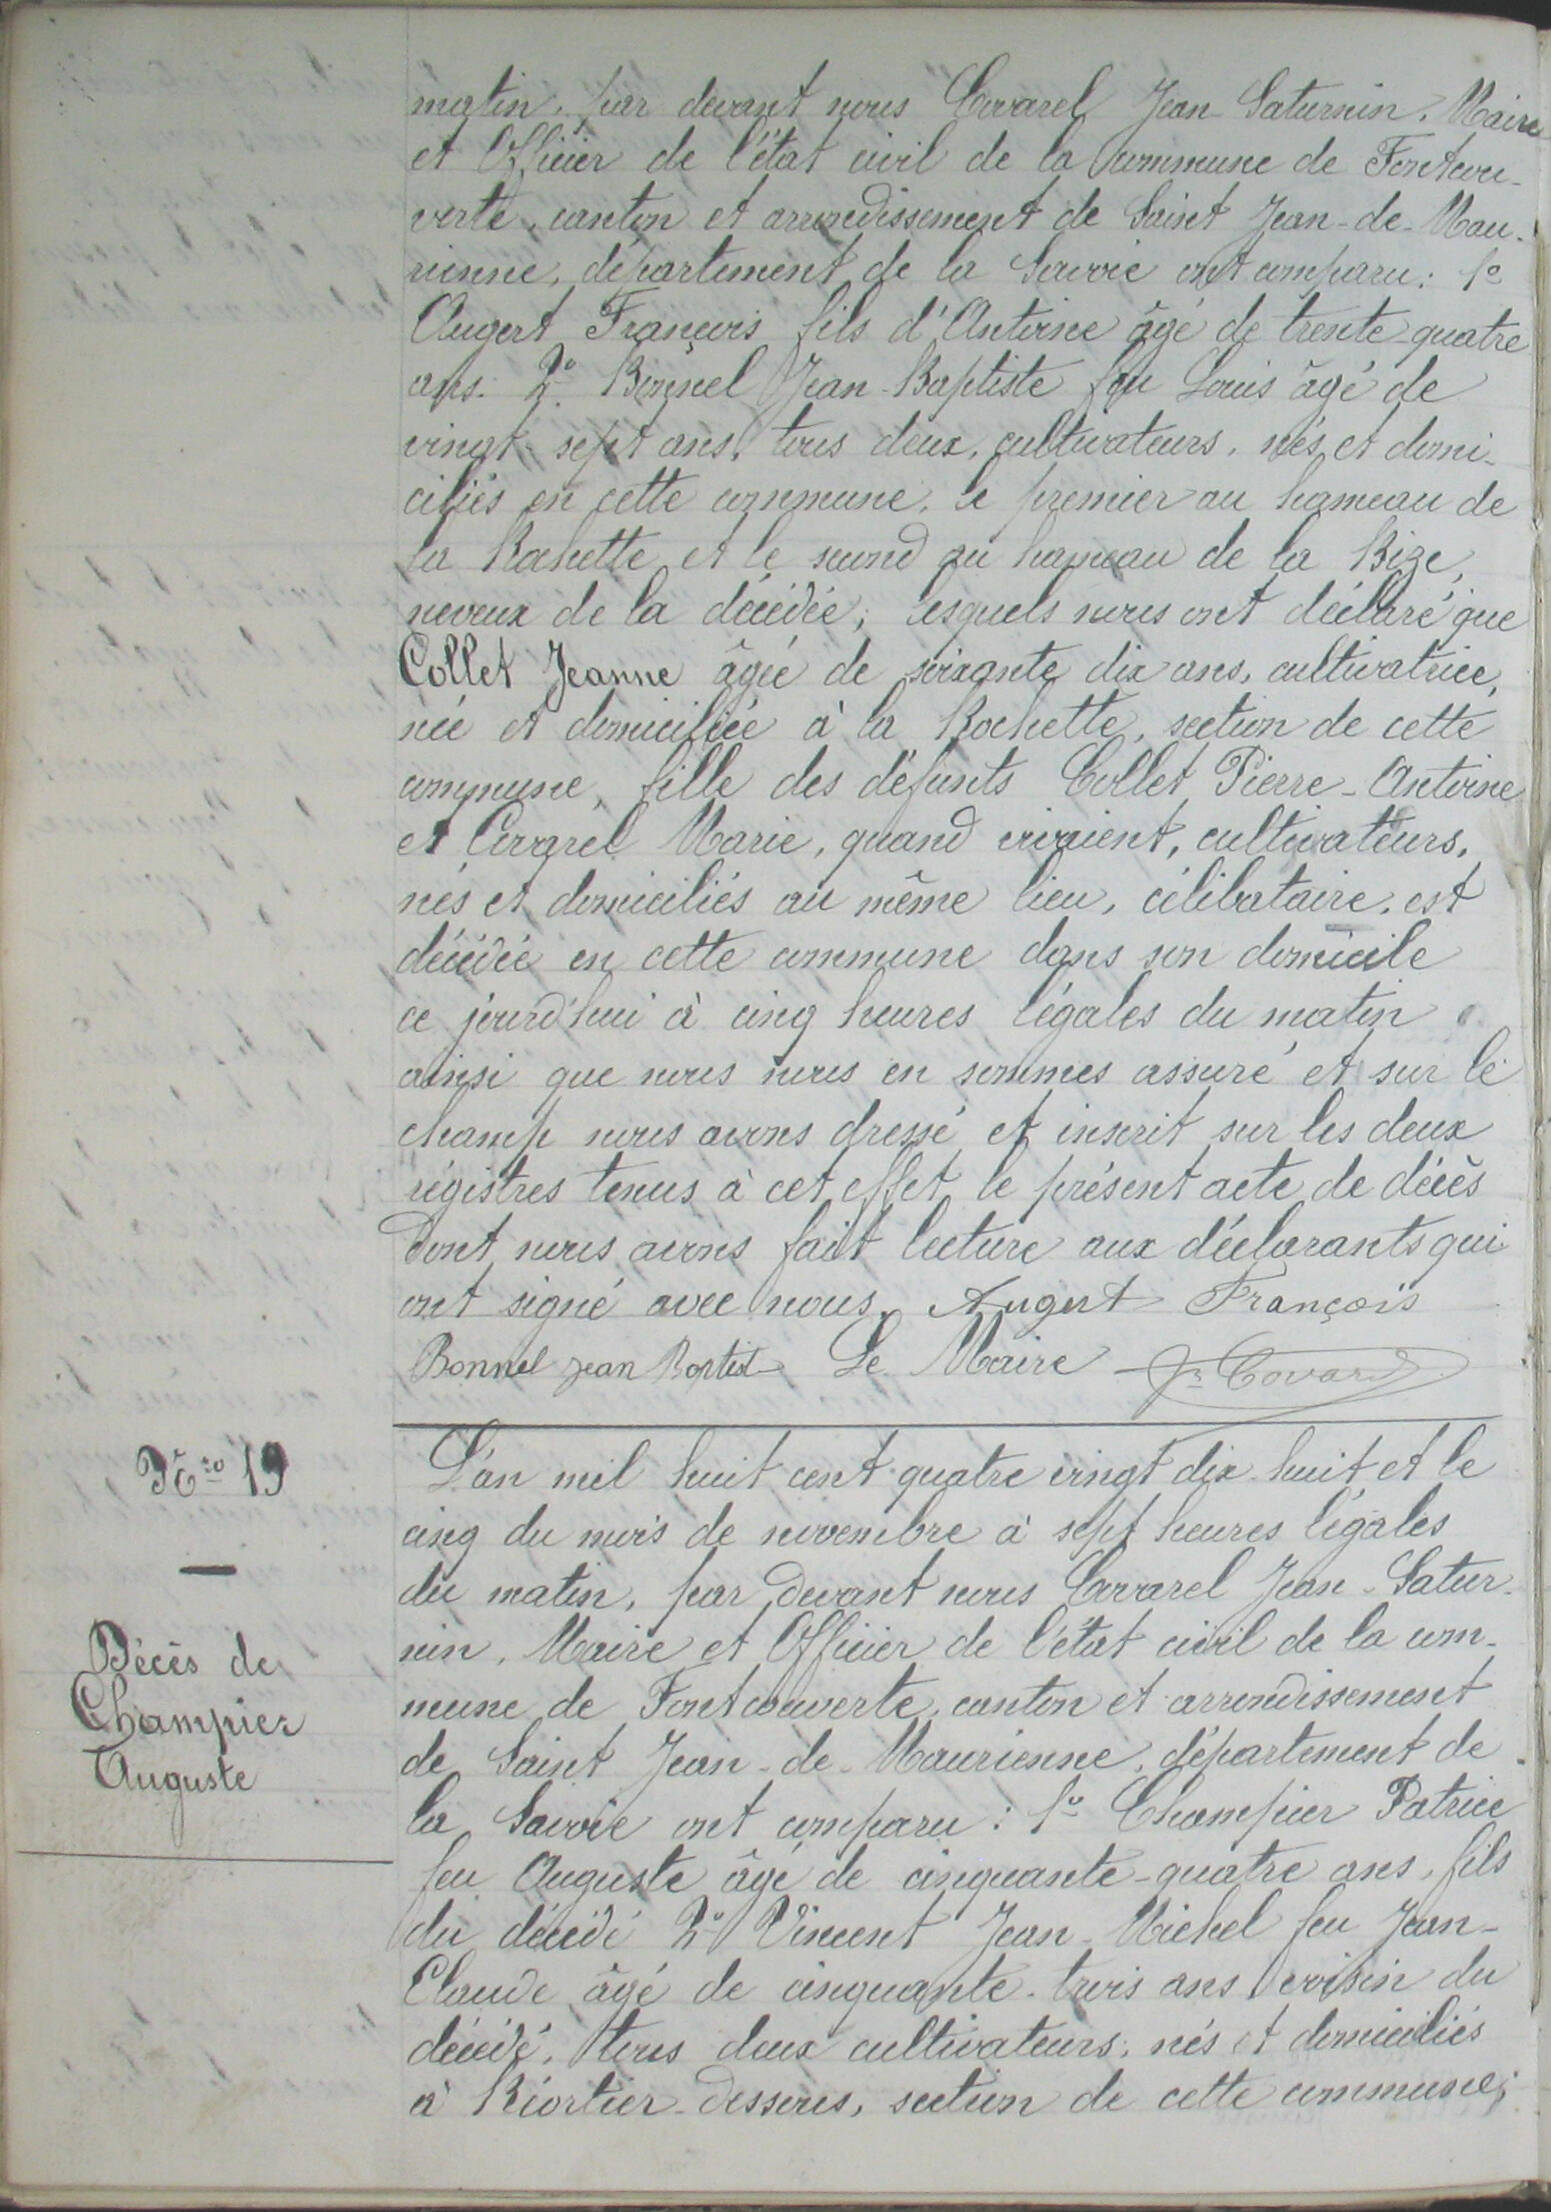 matin, par devant nous Covarel Jean Saturnin, Maire
et Officier de l'état civil de la commune de Fontcou-
verte, canton et arrondissement de Saint Jean-de-Mau-
rienne, département de la Savoie ont comparu : 1º
Augert François fils d'Antoine âgé de trente-quatre
ans. 2º Bonnel Jean-Baptiste feu Louis âgé de
vingt-sept ans, tous deux, cultivateurs, nés et domi-
ciliés en cette commune, le premier au hameau de
la Rochette et le second au hameau de la Bize,
neveux de la décédée; lesquels nous ont déclaré que
Collet Jeanne âgée de soixante dix ans, cultivatrice,
née et domiciliée à la Rochette, section de cette
commune, fille des défunts Collet Pierre-Antoine
et Covarel Marie, quand vivaient, cultivateurs,
nés et domiciliés au même lieu, célibataire, est
décédée en cette commune dans son domicile
ce jourd'hui à cinq heures légales du matin
ainsi que nous nous en sommes assuré et sur le
champ nous avons dressé et inscrit sur les deux
régistres tenus à cet effet le présent acte de décès
dont nous avons fait lecture aux déclarants qui
ont signé avec nous. Augert François
Bonnel Jean Baptist Le Maire Jn Covarel
Nº 19
Décès de
Champier
Auguste
L'an mil huit cent quatre vingt dix huit et le
cinq du mois de novembre à sept heures légales
du matin, par devant nous Covarel Jean-Satur-
nin, Maire et Officier de l'état civil de la com-
mune de Fontcouverte, canton et arrondissement
de Saint Jean-de-Maurienne, département de
la Savoie ont comparu : 1º Champier Patrice
feu Auguste âgé de cinquante-quatre ans, fils
du décédé 2º Vincent Jean-Michel feu Jean-
Claude âgé de cinquante-trois ans voisin du
décédé, tous deux cultivateurs, nés et domiciliés
à Riortier-dessous, section de cette commune;